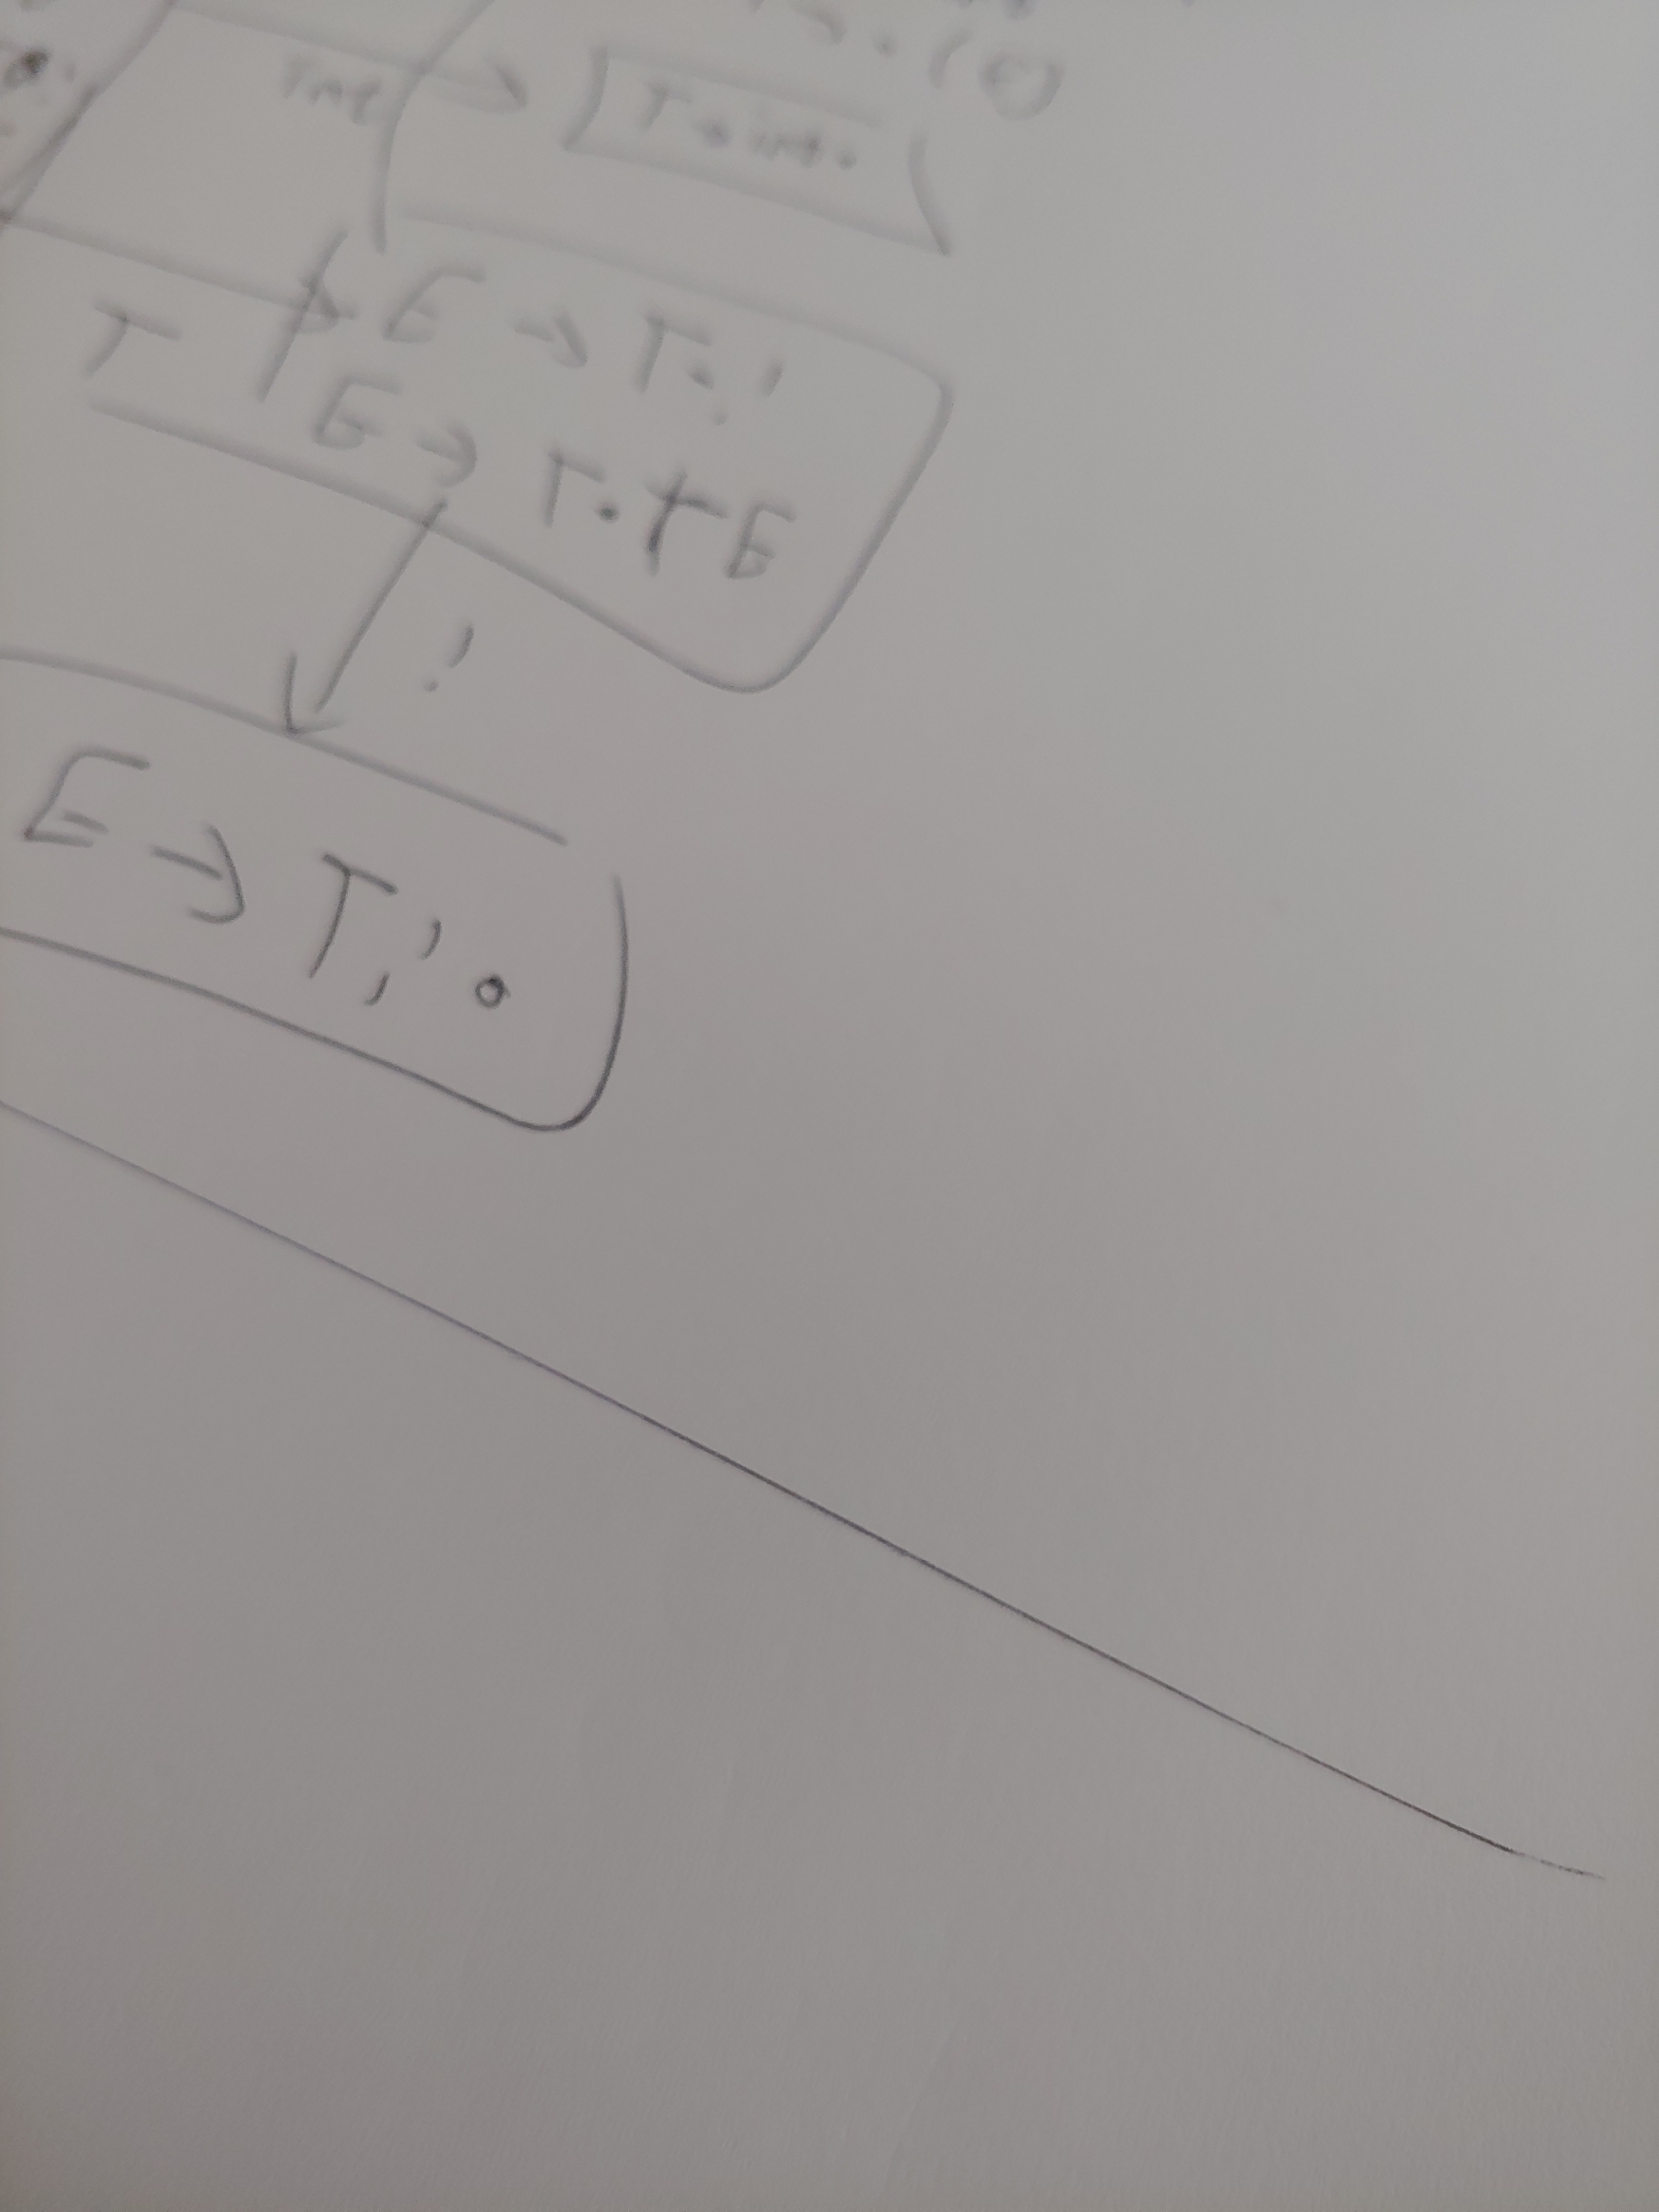 . (
int
T → int .
T
E → T . ;
E → T . + E
;
E → T ; .